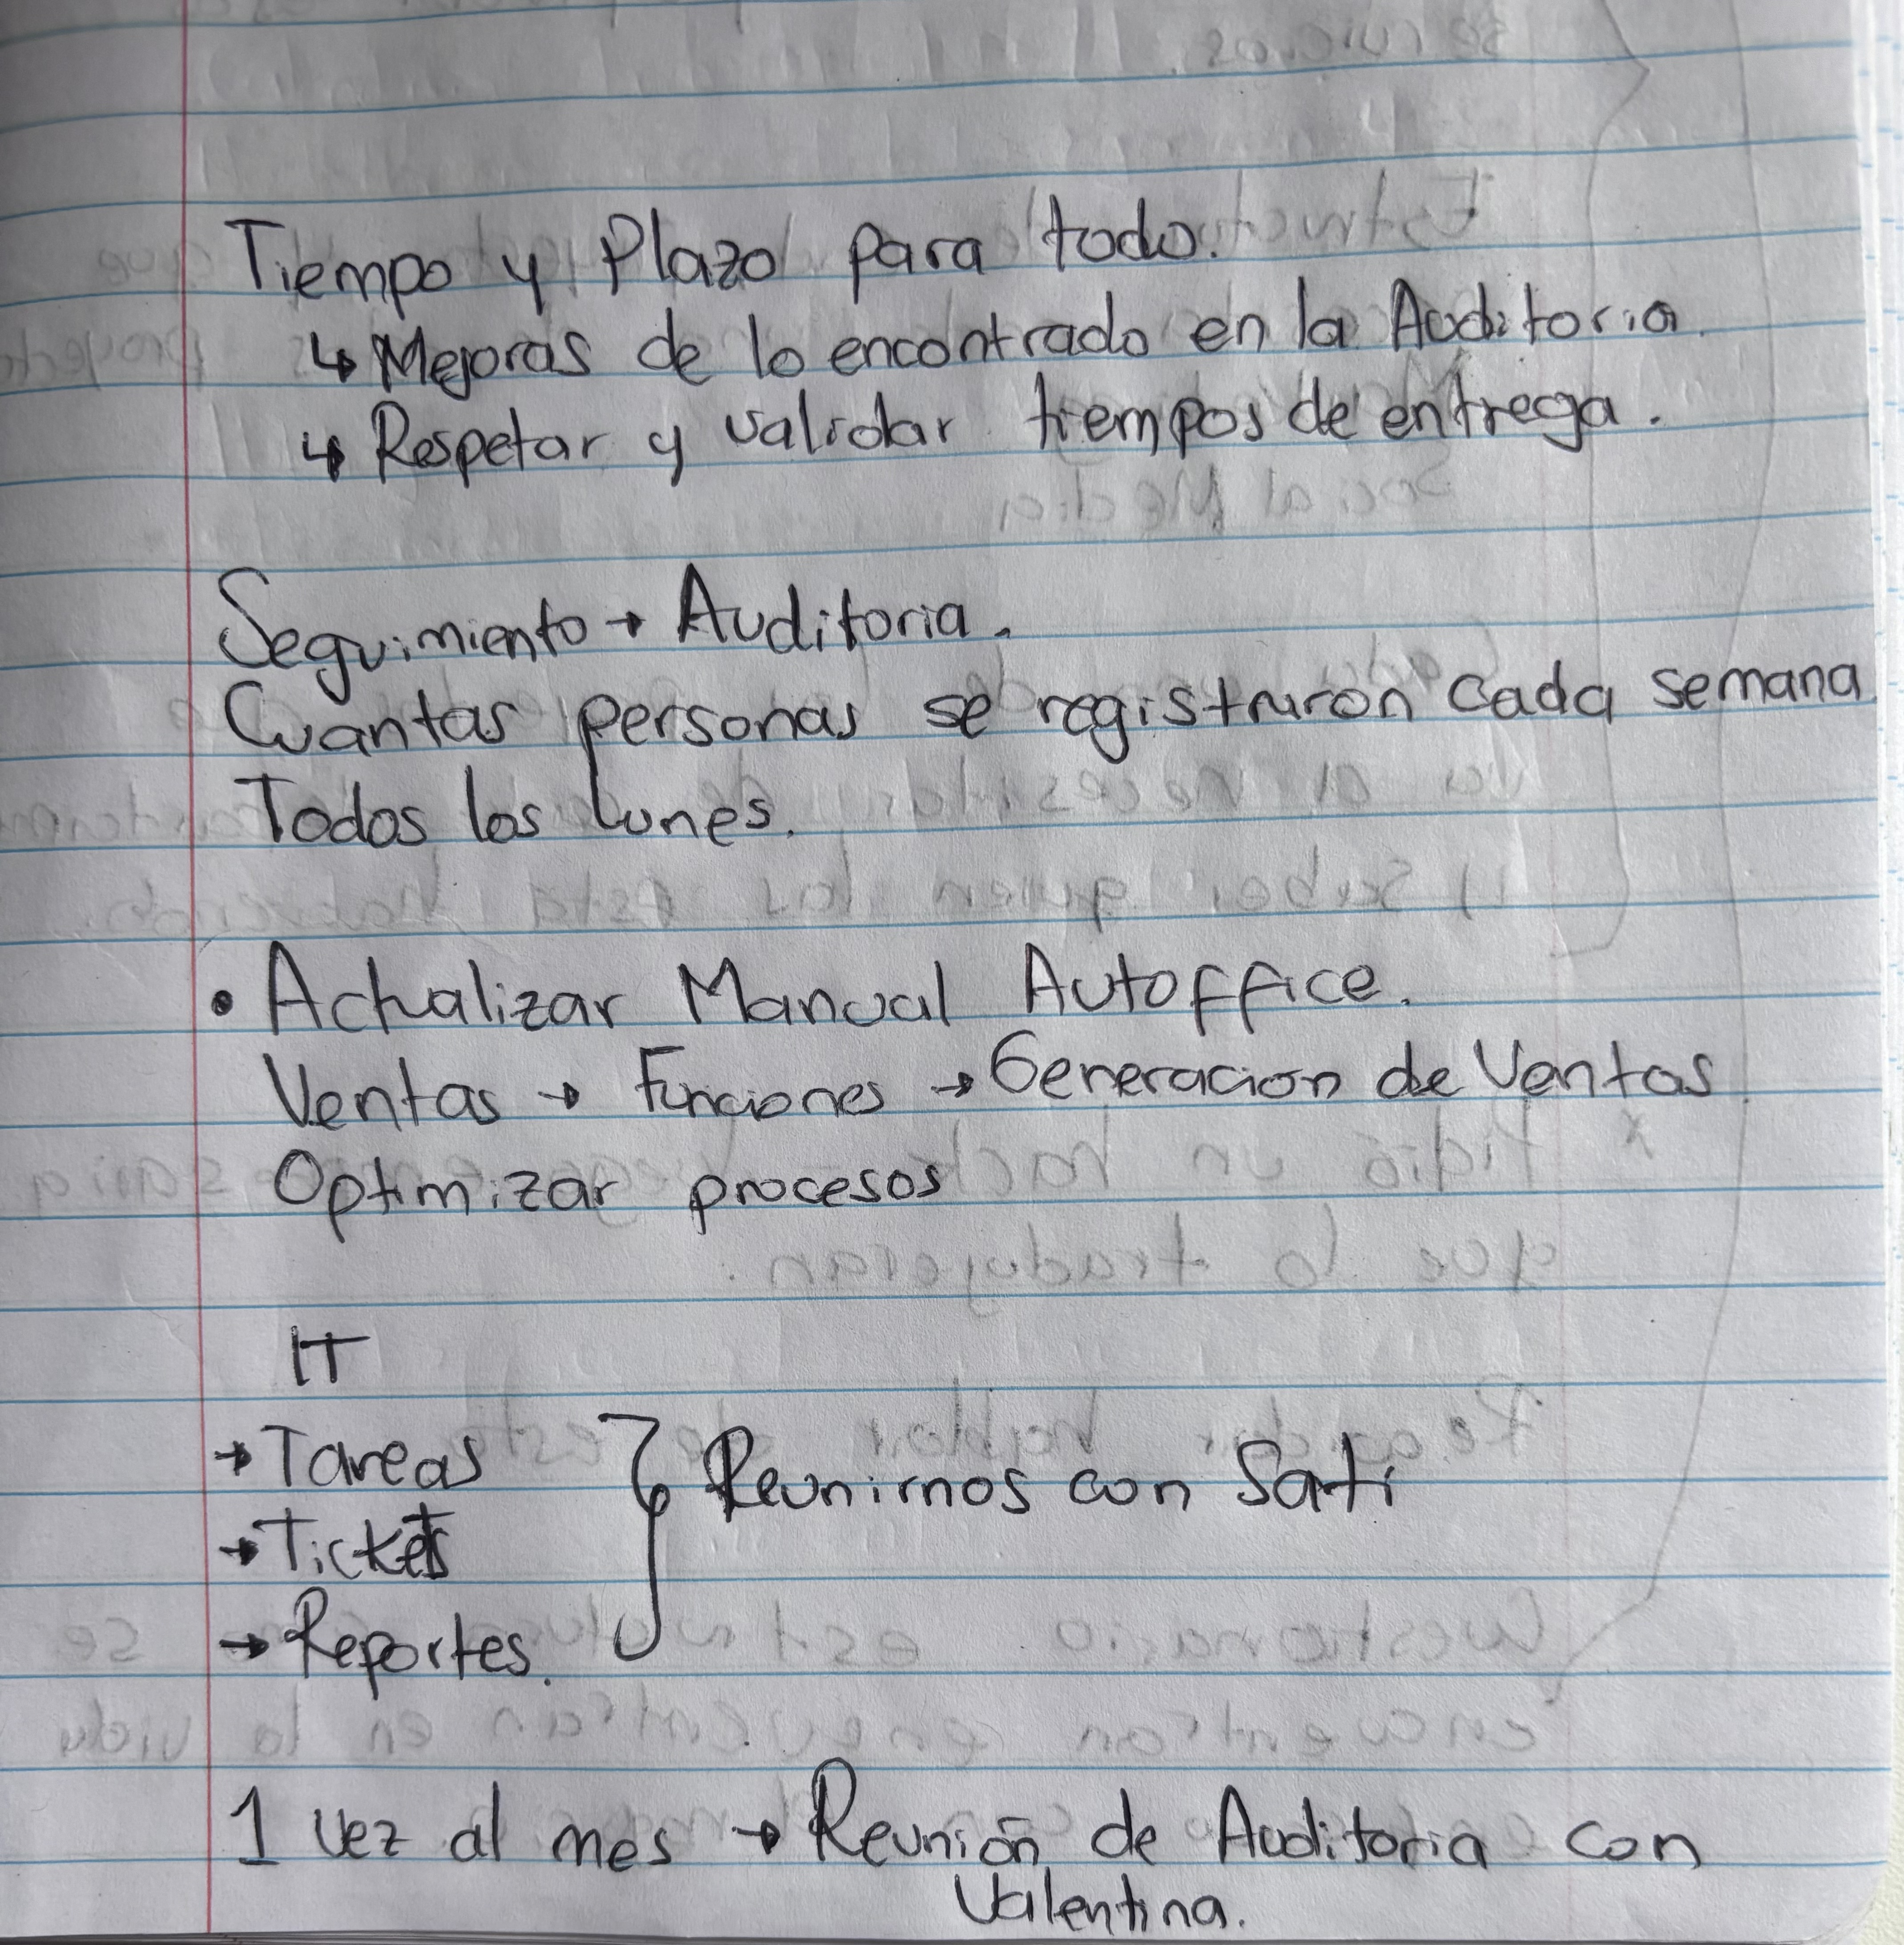 Tiempo y Plazo para todo.
↳ Mejoras de lo encontrado en la Auditoria.
↳ Respetar y validar tiempos de entrega.
Seguimiento → Auditoria.
Cuantas personas se registraron cada semana
Todos los lunes.
• Actualizar Manual Autoffice.
Ventas → Funciones → Generacion de Ventas
Optimizar procesos
IT
→ Tareas
→ Tickets
→ Reportes.
} Reunirnos con Sati
1 vez al mes → Reunión de Auditoria con
Valentina.